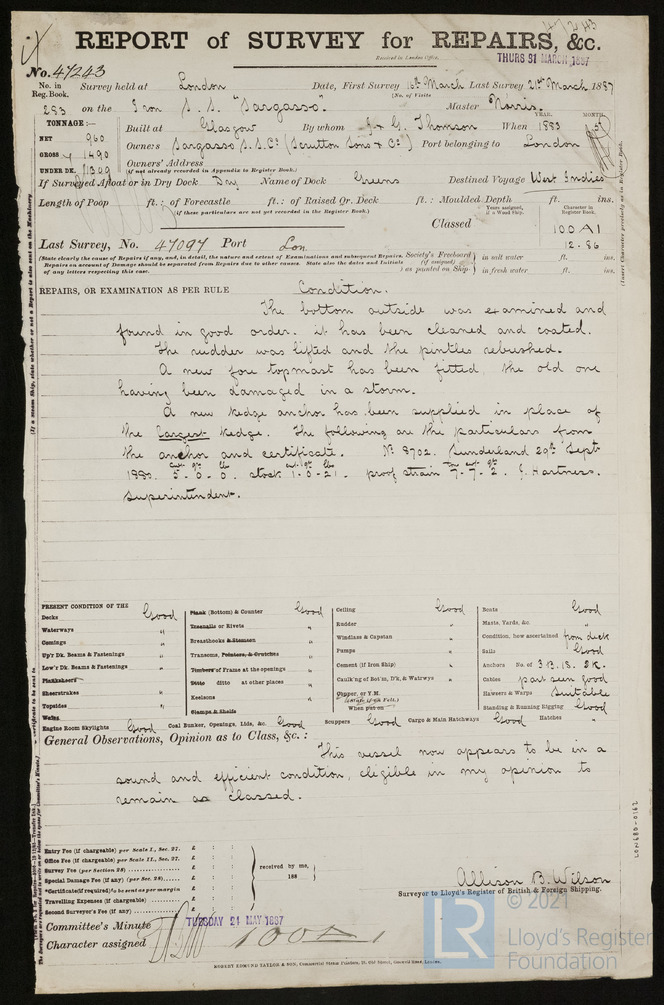 47243
REPORT of SURVEY for REPAIRS, &c.
Received in London Office,
THURS 31 MARCH 1887
No. 47243
No. in Reg. Book. Survey held at London Date, First Survey 16th March Last Survey 21st March 1887
(No. of Visits
283 on the Iron S.S. "Sargasso." Master Norris.
TONNAGE:— Built at Glasgow By whom J & G. Thomson When YEAR. 1883 MONTH. 5
NET 960
GROSS 1490
UNDER DK. 1309
Owners Sargasso S.S. Co (Scrutton Sons & Co) Port belonging to London
Owners' Address
(if not already recorded in Appendix to Register Book.)
If Surveyed Afloat or in Dry Dock Dry Name of Dock Greens Destined Voyage West Indies
Length of Poop ft.: of Forecastle ft.: of Raised Qr. Deck ft.: Moulded Depth ft. ins.
(if these particulars are not yet recorded in the Register Book.)
Years assigned, if a Wood Ship.
Character in Register Book.
Classed 100 A1
12.86
Last Survey, No. 47097 Port Lon
(State clearly the cause of Repairs if any, and, in detail, the nature and extent of Examinations and subsequent Repairs. Repairs on account of Damage should be separated from Repairs due to other causes. State also the dates and Initials of any letters respecting this case.
Society's Freeboard (if assigned) as painted on Ship- in salt water ft. ins.
in fresh water ft. ins.
REPAIRS, OR EXAMINATION AS PER RULE Condition.
The bottom outside was examined and
found in good order. it has been cleaned and coated.
The rudder was lifted and the pintles rebushed.
A new fore topmast has been fitted, the old one
having been damaged in a storm.
A new kedge anchor has been supplied in place of
the largest kedge. The following are the particulars from
the anchor and certificate. No 8702. Sunderland 29th Sept
188 5-0-0. stock 1-0-21. proof strain 7-7-2. J. Hartness.
Superintendent.
PRESENT CONDITION OF THE
Decks Good
Waterways "
Comings "
Up'r Dk. Beams & Fastenings "
Low'r Dk. Beams & Fastenings "
Planksheers
Sheerstrakes "
Topsides "
Wales
Engine Room Skylights Good
Plank (Bottom) & Counter Good
Treenails or Rivets "
Breasthooks & Stemson "
Transoms, Pointers, & Crutches "
Timbers of Frame at the openings "
Ditto ditto at other places "
Keelsons "
Clamps & Shelfs
Coal Bunker, Openings, Lids, &c. Good
Ceiling Good
Rudder "
Windlass & Capstan "
Pumps "
Cement (if Iron Ship) "
Caulk'ng of Bot'm, D'k, & Wat'rwys "
Copper, or Y.M.
When put on
Scuppers Good Cargo & Main Hatchways Good Hatches "
Boats Good
Masts, Yards, &c. "
Condition, how ascertained from deck
Sails Good
Anchors No. of 3 B. 1 S. 2 K.
Cables part seen good
Hawsers & Warps Suitable
Standing & Running Rigging Good
General Observations, Opinion as to Class, &c.:
This vessel now appears to be in a
sound and efficient condition, eligible in my opinion to
remain as classed.
Entry Fee (if chargeable) per Scale I., Sec. 27. £ : :
Office Fee (if chargeable) per Scale II., Sec. 27. £ : :
Survey Fee (per Section 28) £ : :
Special Damage Fee (if any) (per Sec. 28) £ : :
*Certificate (if required) to be sent as per margin £ : :
Travelling Expenses (if chargeable) £ : :
Second Surveyor's Fee (if any) £ : :
received by me,
188
Allison B. Wilson
Surveyor to Lloyd's Register of British & Foreign Shipping.
Committee's Minute
TUESDAY 24 MAY 1887
Character assigned 100 A 1
ROBERT EDMUND TAYLOR & SON, Commercial Steam Printers, 19, Old Street, Goswell Road, London.
LON680-0192
© 2021
LR
Lloyd's Register
Foundation